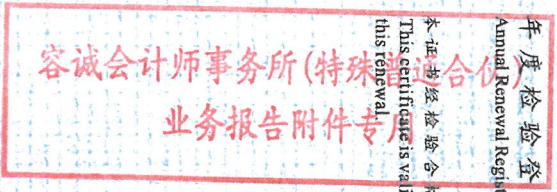 容诚会计师事务所(特殊普通合伙)
业务报告附件专用
年度检验登
Annual Renewal Regis
本证书经检验合格
This certificate is vali
this renewal.